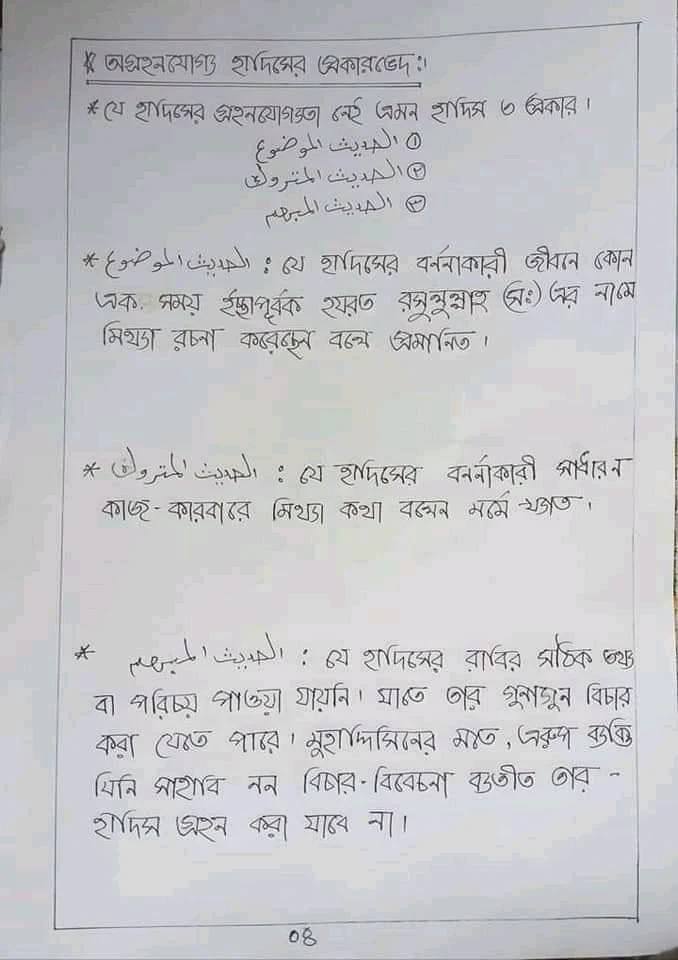 * অগ্রহনযোগ্য হাদিসের প্রকারভেদ:।
* যে হাদিসের গ্রহনযোগ্যতা নেই এমন হাদিস ৩ প্রকার।
① الحديث الموضوع
② الحديث المتروك
③ الحديث المبهم
* الحديث الموضوع : যে হাদিসের বর্ননাকারী জীবনে কোন
এক সময় ইচ্ছাপূর্বক হযরত রসুলুল্লাহ (স:) এর নামে
মিথ্যা রচনা করেছেন বলে প্রমানিত।
* الحديث المتروك : যে হাদিসের বর্ননাকারী সাধারন
কাজ-কারবারে মিথ্যা কথা বলেন মর্মে খ্যাত।
* الحديث المبهم : যে হাদিসের রাবির সঠিক তথ্য
বা পরিচয় পাওয়া যায়নি। যাতে তার গুনাগুন বিচার
করা যেতে পারে। মুহাদ্দিসিনের মতে, এরুপ ব্যক্তি
যিনি সাহাবি নন বিচার-বিবেচনা ব্যতীত তার -
হাদিস গ্রহন করা যাবে না।
০৪